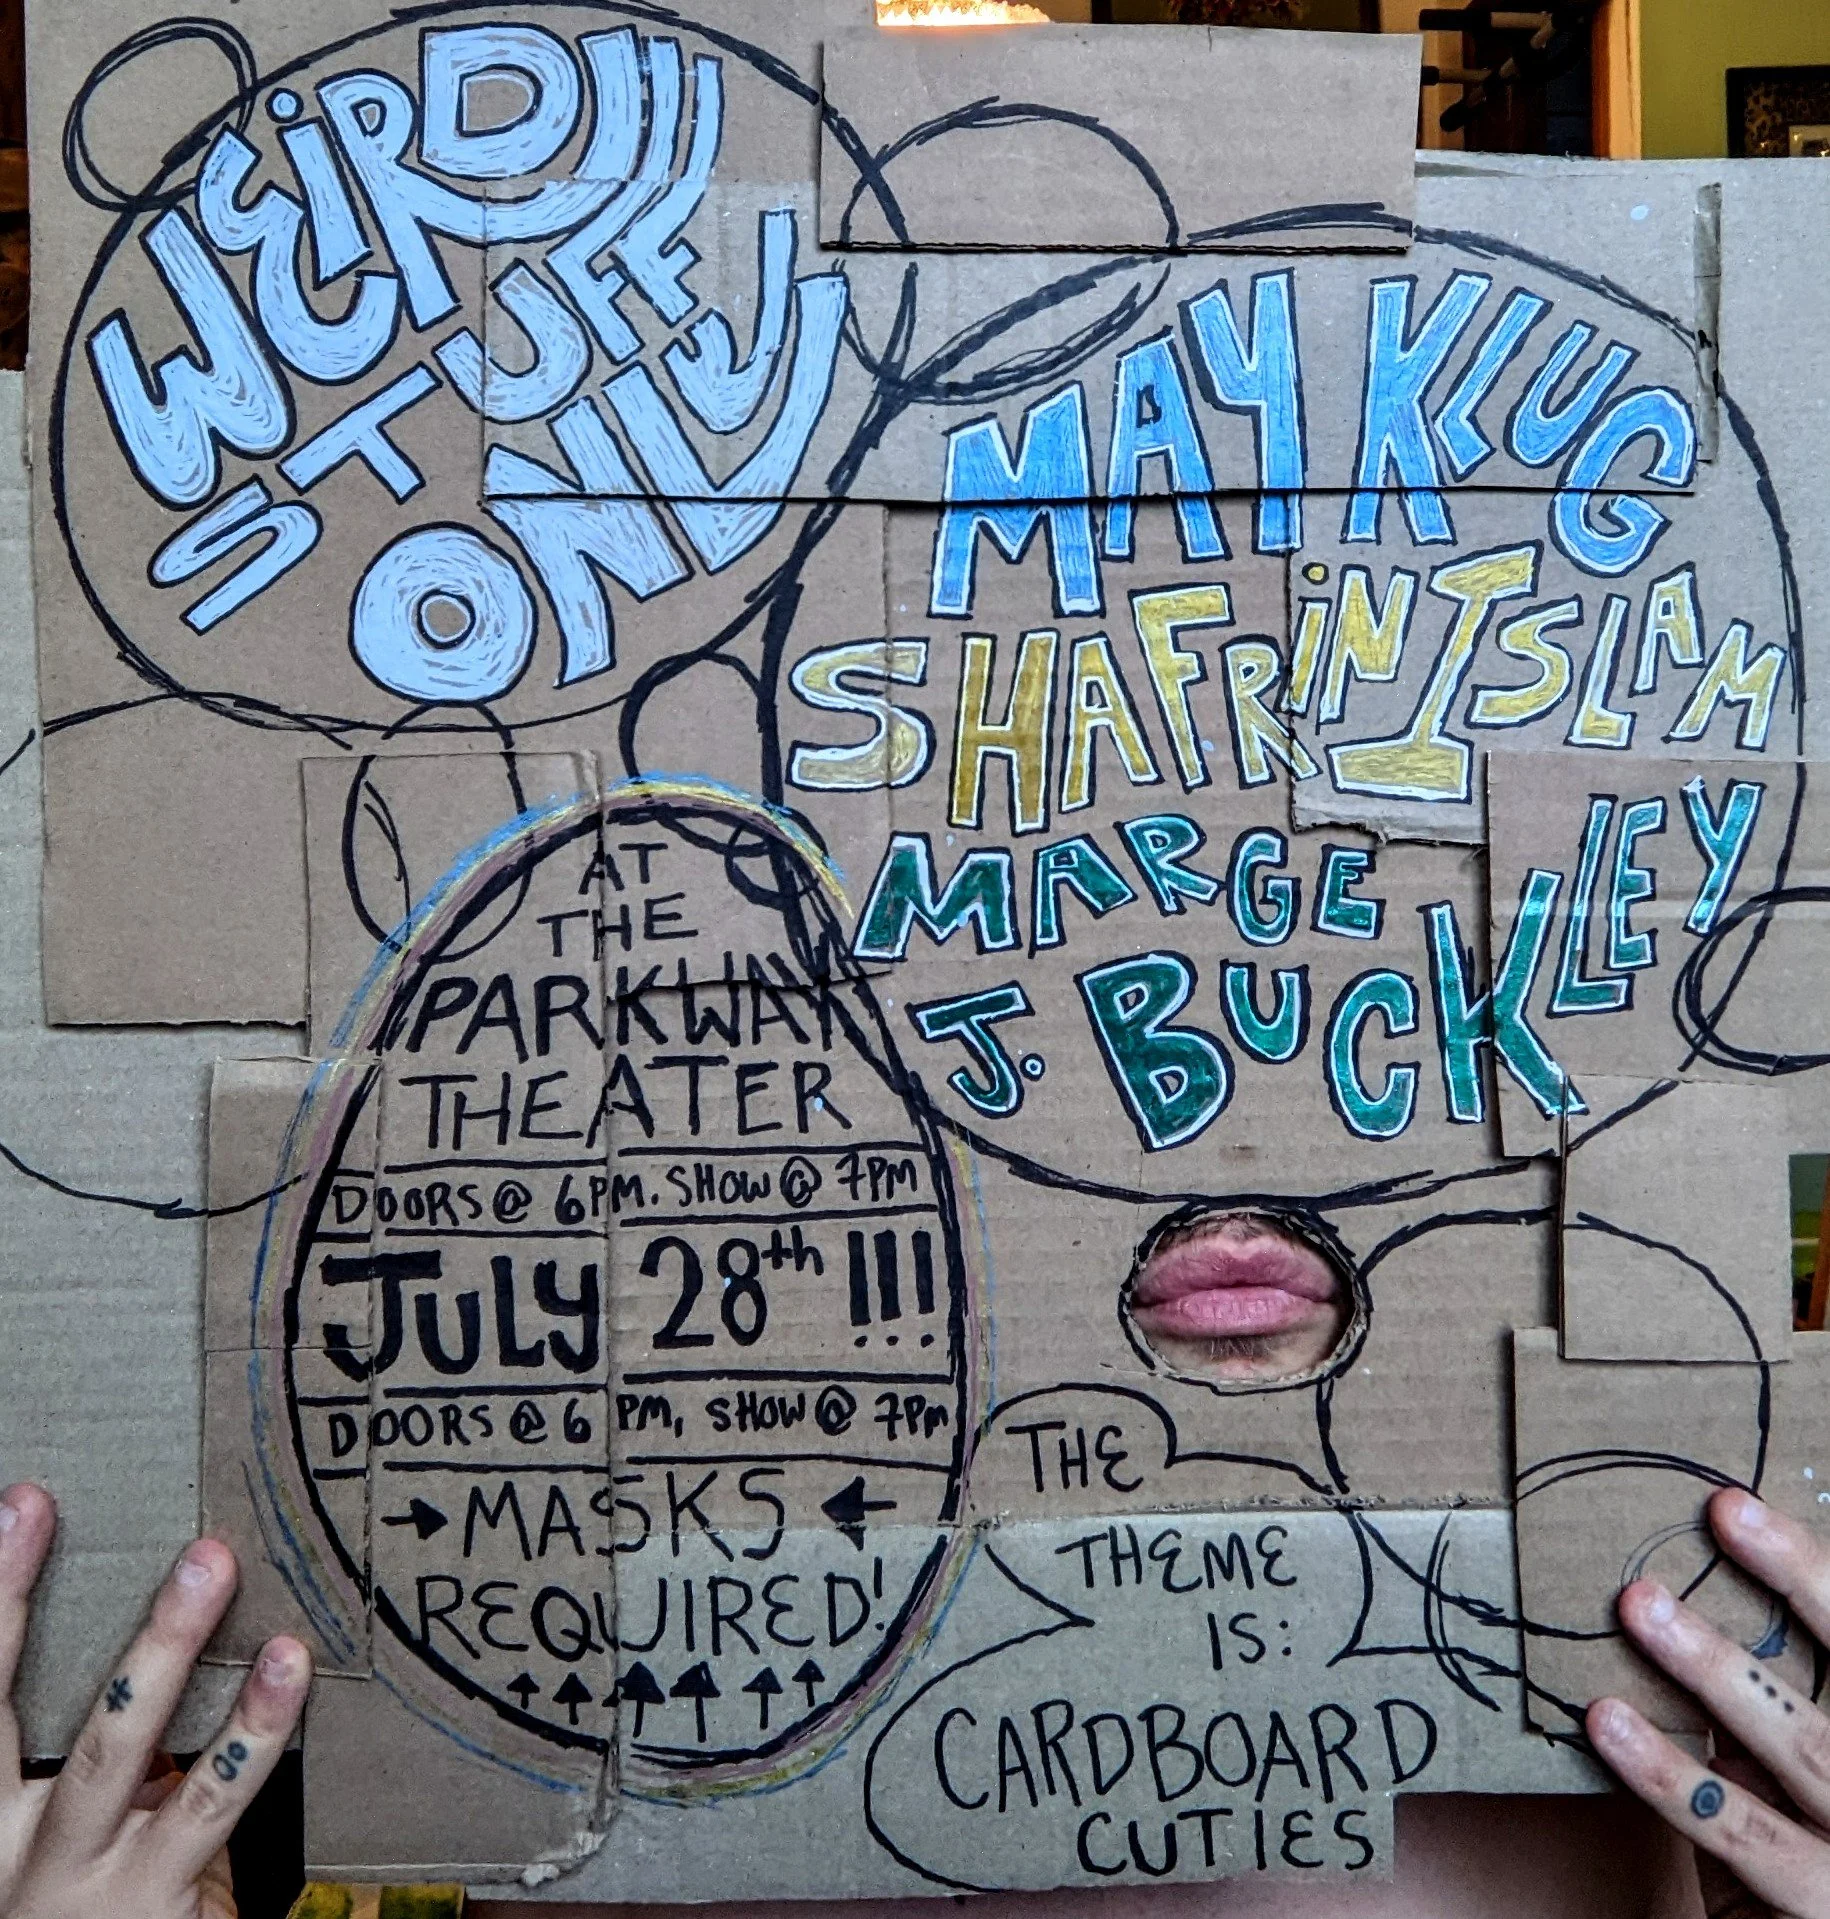 WEiRD
STUFF
ONLY
MAY KLUG
SHAFRiN ISLAM
MARGE
J. BUCKLEY
AT
THE
PARKWAY
THEATER
DOORS @ 6PM. SHOW @ 7PM
JULY 28th !!!
DOORS @ 6 PM, SHOW @ 7PM
→ MASKS ←
REQUIRED!
THE
THEME
IS:
CARDBOARD
CUTIES